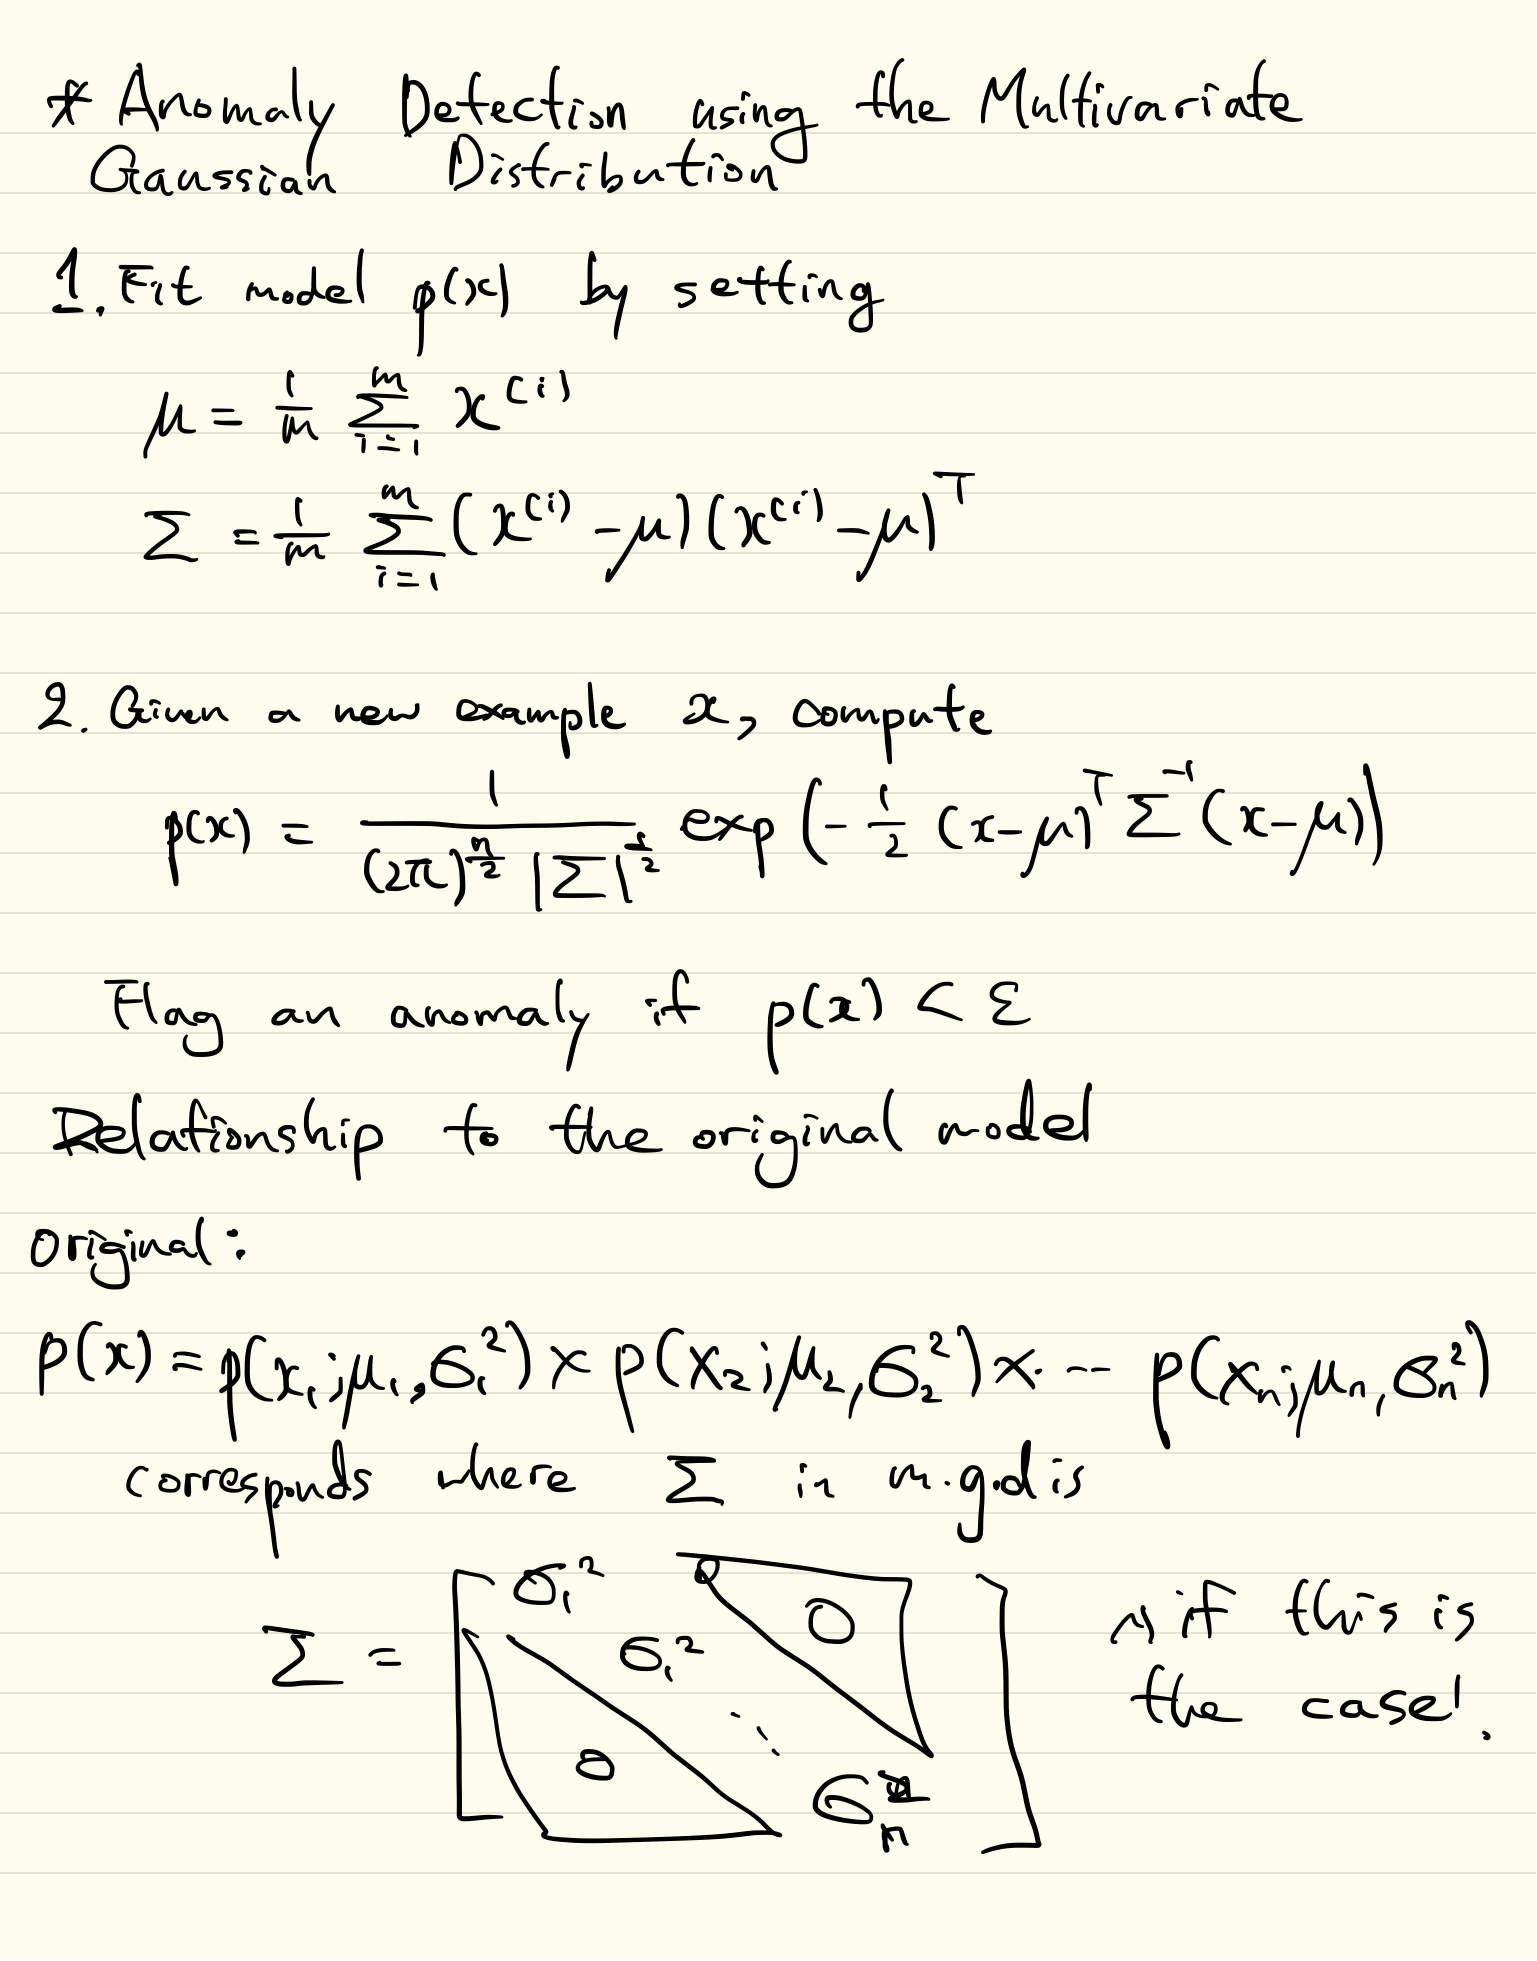 * Anomaly Detection using the Multivariate
Gaussian Distribution
1. Fit model p(x) by setting
μ = 1/m Σ_{i=1}^{m} x^{(i)}
Σ = 1/m Σ_{i=1}^{m} (x^{(i)} - μ)(x^{(i)} - μ)^T
2. Given a new example x, compute
p(x) = 1 / ((2π)^{n/2} |Σ|^{1/2}) exp(-1/2 (x-μ)^T Σ^{-1} (x-μ))
Flag an anomaly if p(x) < ε
Relationship to the original model
Original:
p(x) = p(x₁; μ₁, σ₁²) × p(x₂; μ₂, σ₂²) × ... p(xₙ; μₙ, σₙ²)
corresponds where Σ in m.g.d is
Σ = [ σ₁² 0 σ₁² ⋱ 0 σₙ² ] if this is
the case!.